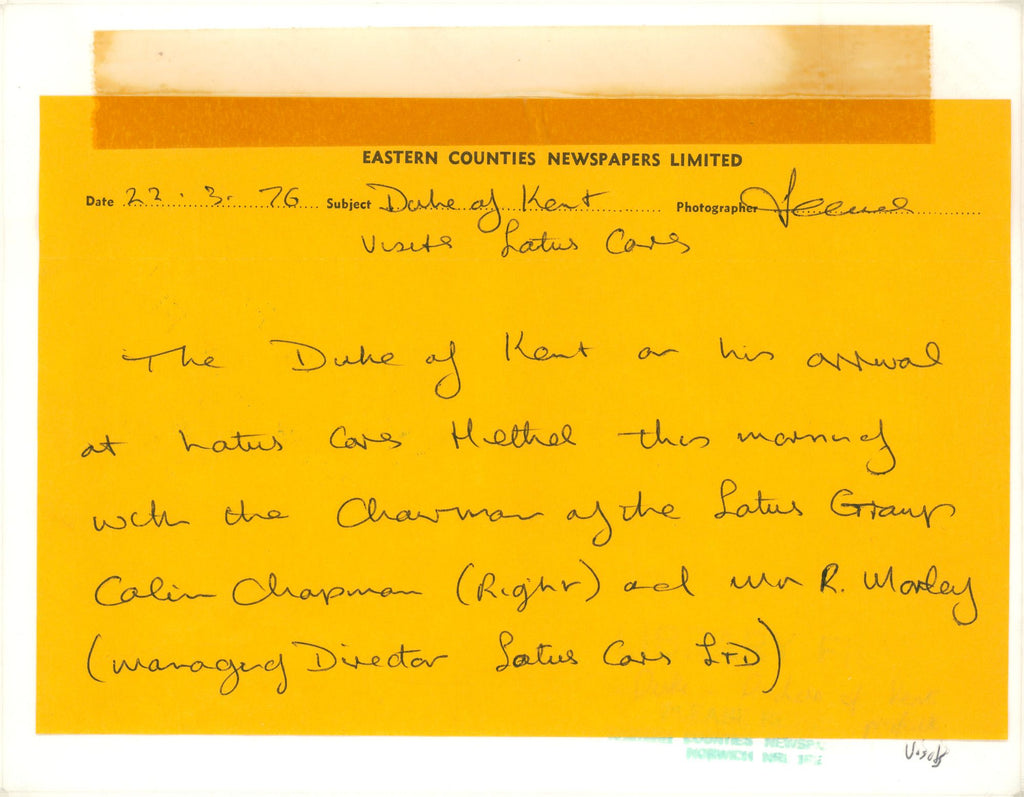 EASTERN COUNTIES NEWSPAPERS LIMITED
Date 22. 3. 76 Subject Duke of Kent Photographer
Visits Lotus Cars
The Duke of Kent on his arrival
at Lotus Cars Hethel this morning
with the Chairman of the Lotus Group
Colin Chapman (Right) and Mr R. Morley
(Managing Director Lotus Cars LTD)
Duke of Kent
COUNTIES NEWSP
NORWICH NR1 1RE
Visits